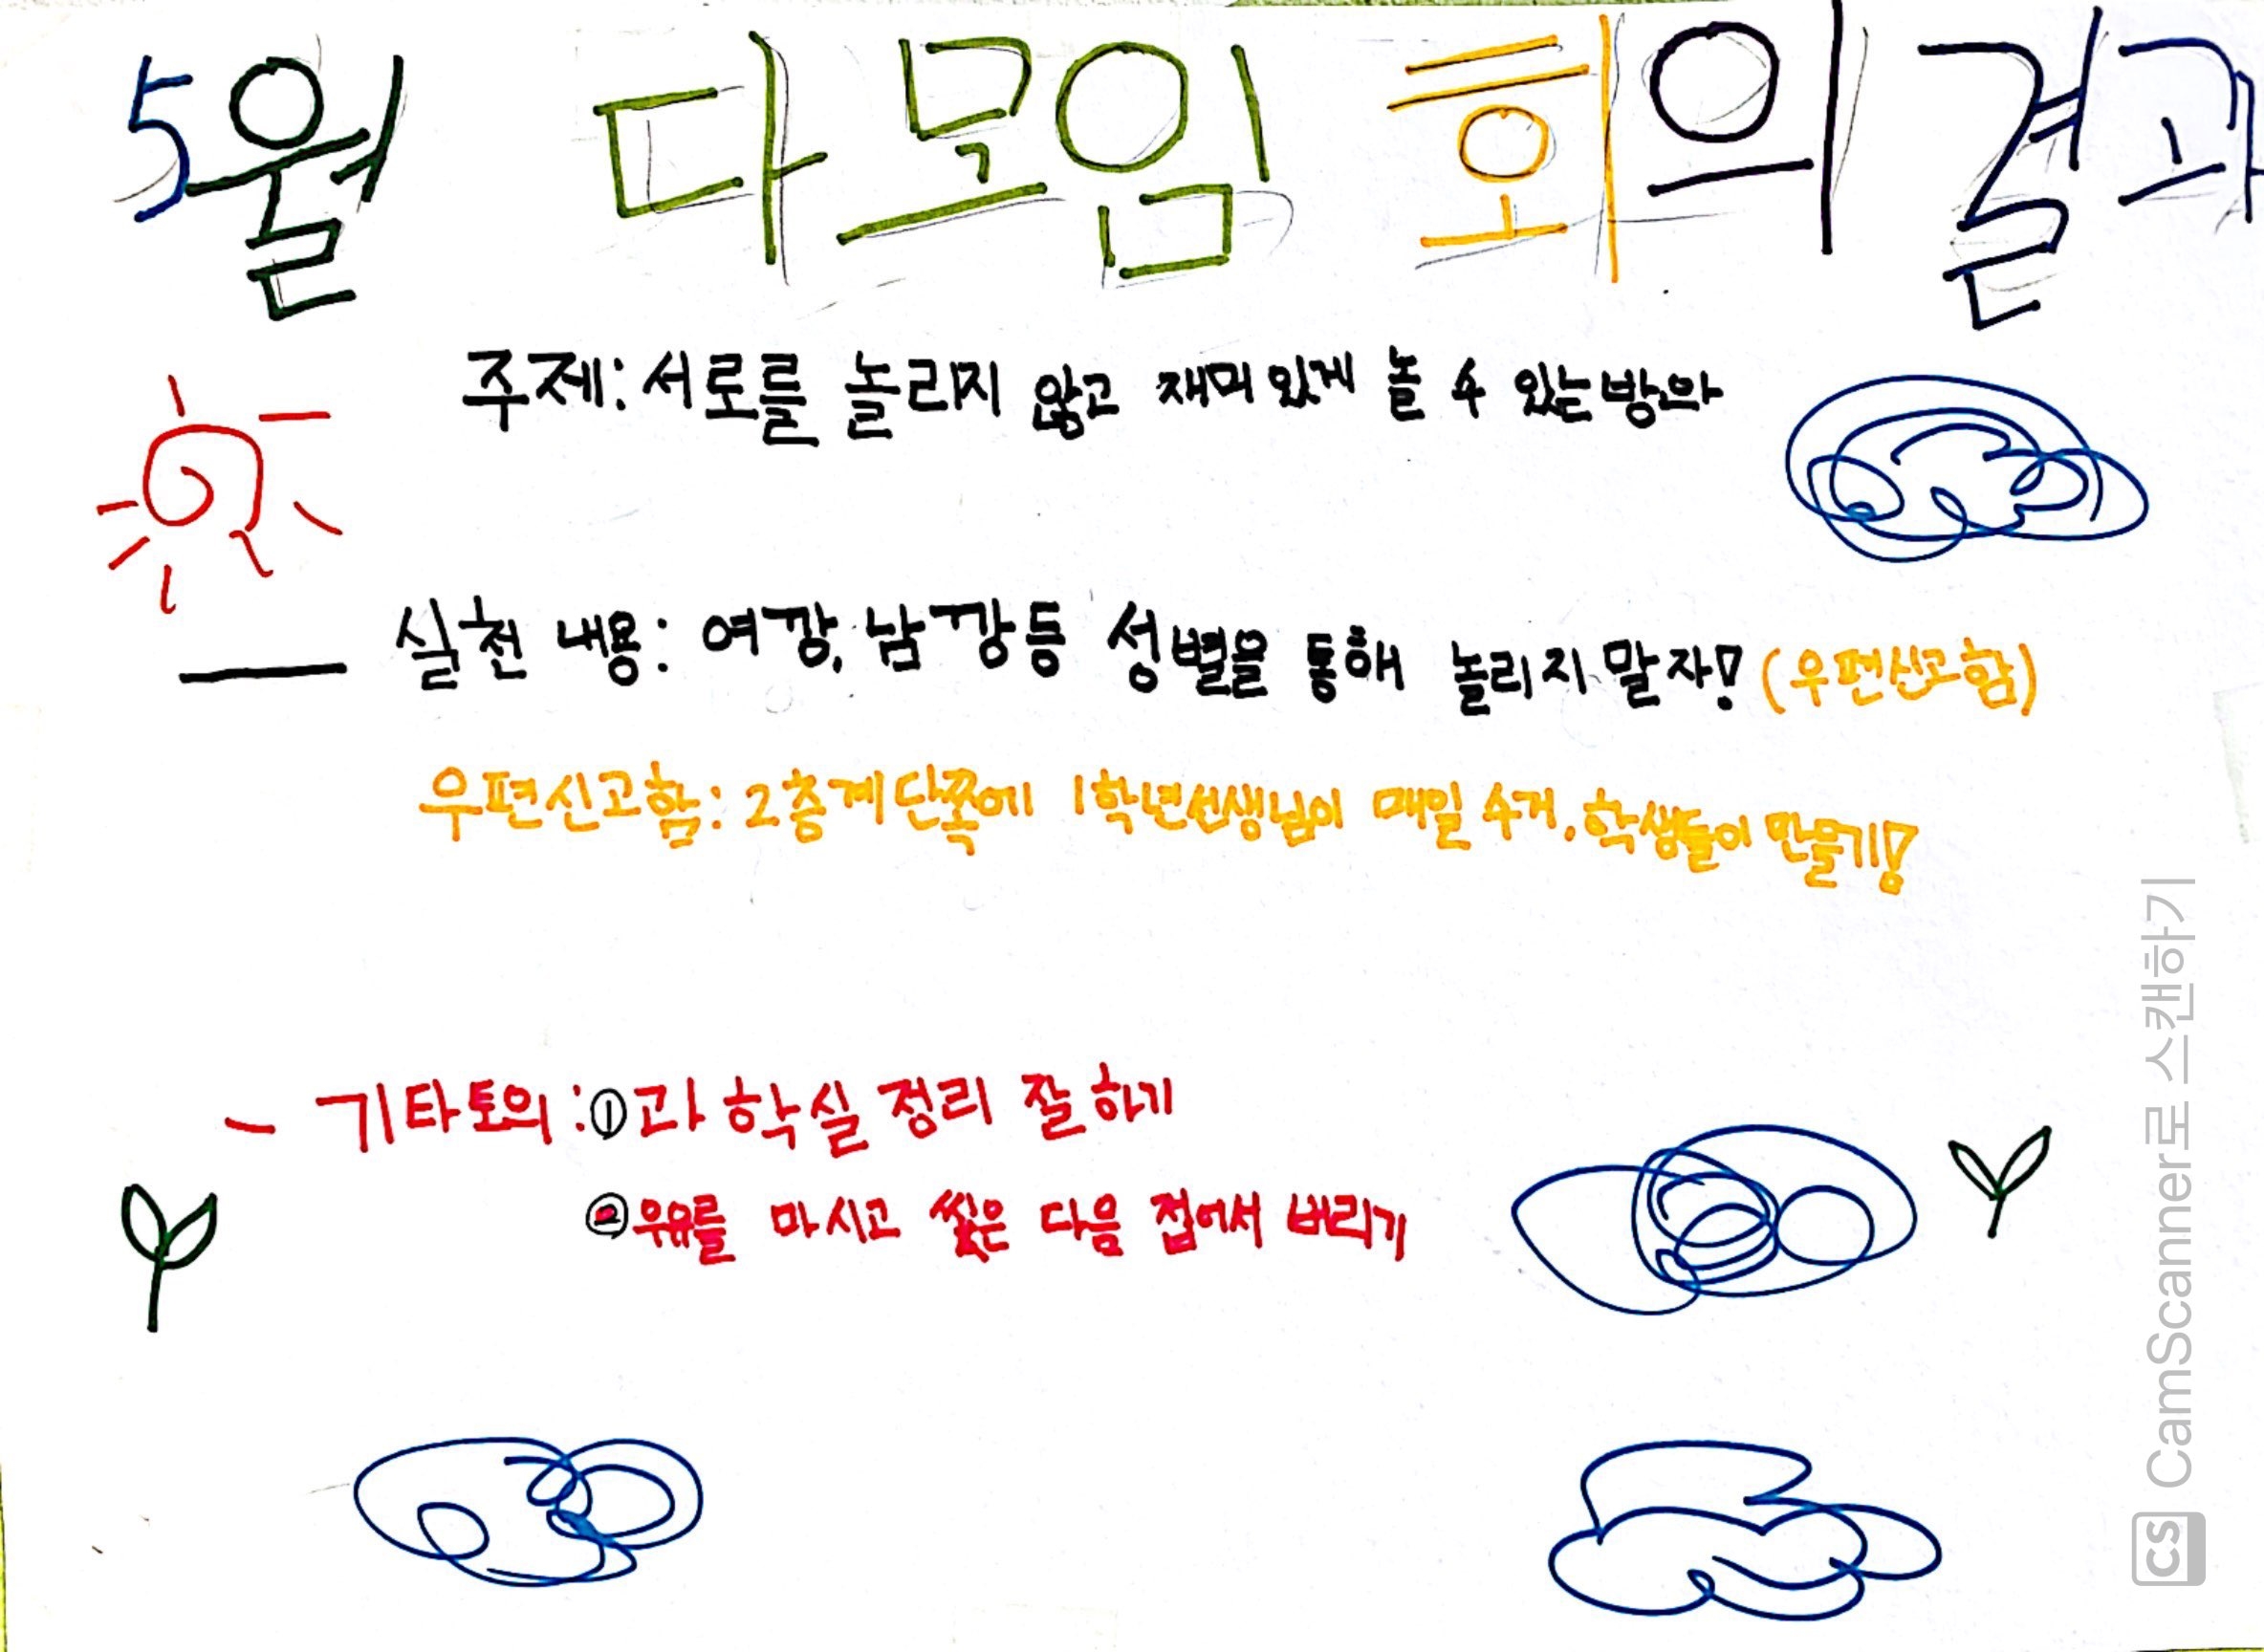 5월 다모임 회의 결과
주제: 서로를 놀리지 않고 재미있게 놀 수 있는 방안
실천 내용: 여깡, 남깡 등 성별을 통해 놀리지 말자! (우편신고함)
우편신고함: 2층계단쪽에 1학년선생님이 매일 수거, 학생들이 만들기!
- 기타토의: ① 과학실 정리 잘 하기
② 우유를 마시고 씻은 다음 접어서 버리기
CS CamScanner로 스캔하기